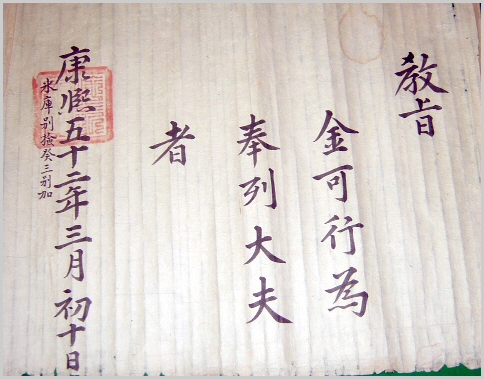 教旨
金可行為
奉列大夫
者
康熙五十二年三月初十日
氷庫別撿癸三別加